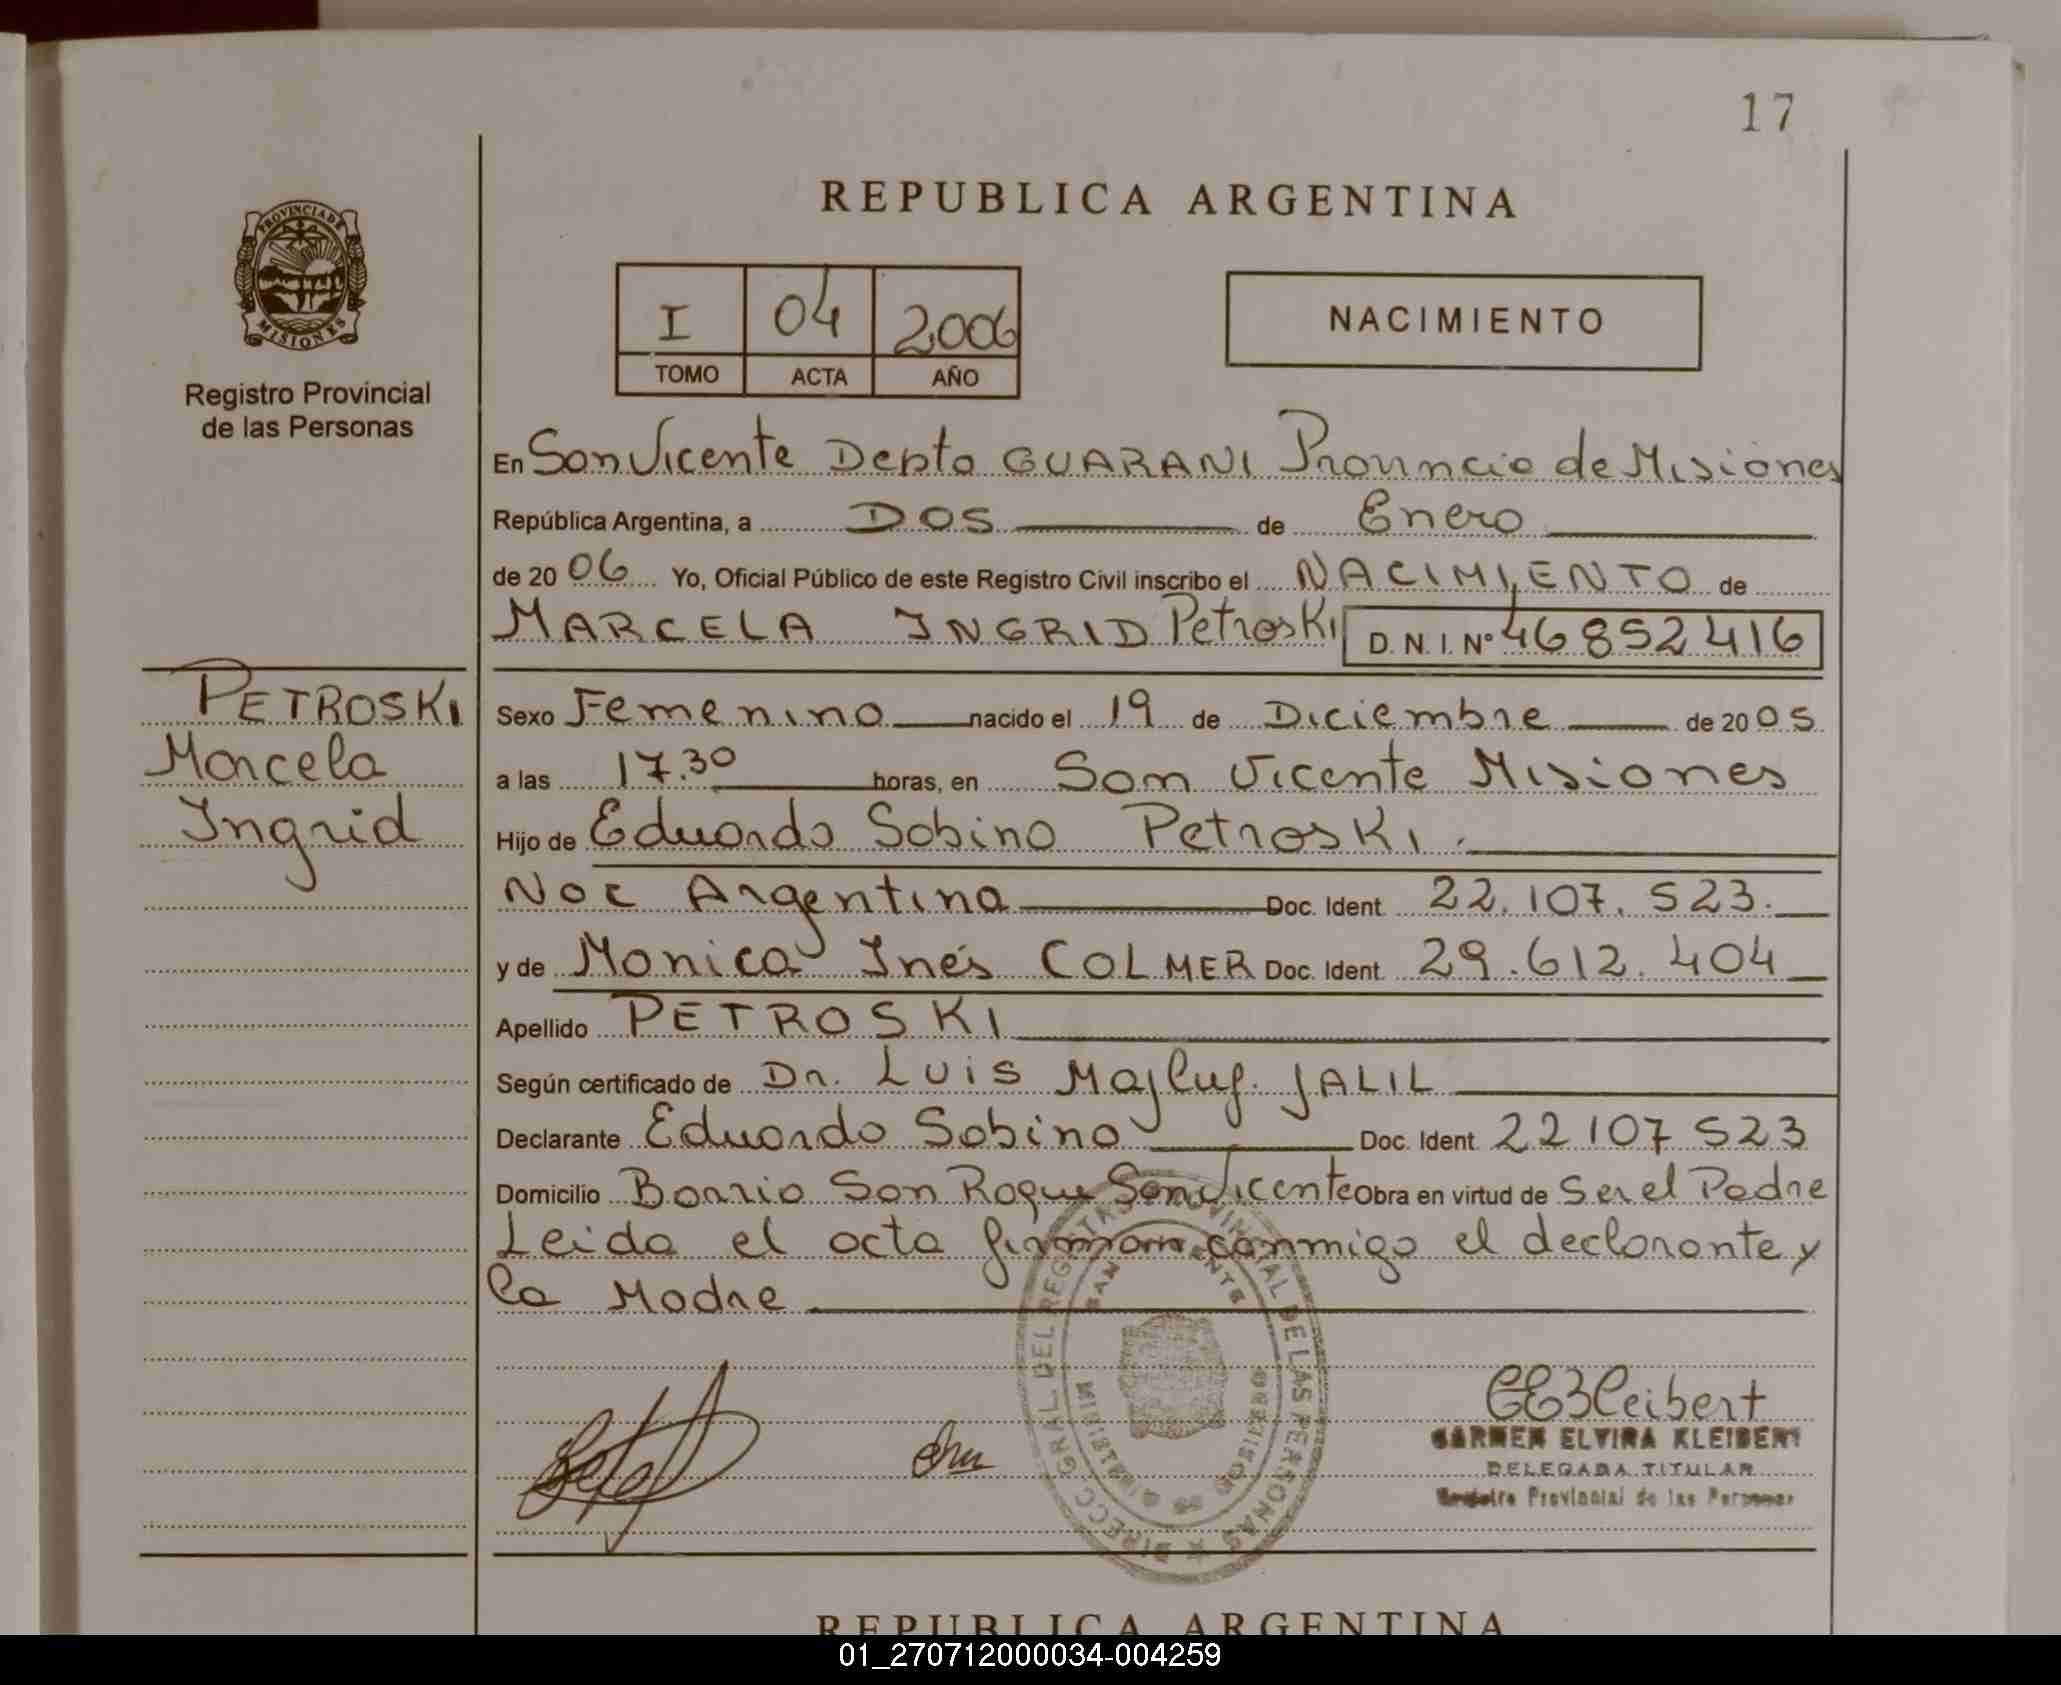 17
REPUBLICA ARGENTINA
PROVINCIA DE
MISIONES
Registro Provincial
de las Personas
I 04 2006
TOMO ACTA AÑO
NACIMIENTO
En San Vicente Depto GUARANI Provincia de Misiones
República Argentina, a DOS de Enero
de 2006 Yo, Oficial Público de este Registro Civil inscribo el NACIMIENTO de
MARCELA INGRID PetrosKi D.N.I. Nº 46852416
PETROSKI
Marcela
Ingrid
Sexo Femenino nacido el 19 de Diciembre de 2005
a las 17.30 horas, en San Vicente Misiones
Hijo de Eduardo Sabino PetrosKi
Nac Argentina Doc. Ident. 22.107.523.
y de Monica Inés COLMER Doc. Ident. 29.612.404
Apellido PETROSKI
Según certificado de Dr. Luis Majluf JALIL
Declarante Eduardo Sabino Doc. Ident. 22107523
Domicilio Barrio San Roque San Vicente Obra en virtud de Ser el Padre
Leida el acta firman conmigo el declarante y
la Madre
DIRECC GRAL DEL REGISTRO PROVINCIAL DE LAS PERSONAS
SAN VICENTE
MINISTERIO DE GOBIERNO
CEKleibert
CARMEN ELVIRA KLEIBERT
DELEGADA TITULAR
Registro Provincial de las Personas
REPUBLICA ARGENTINA
01_270712000034-004259